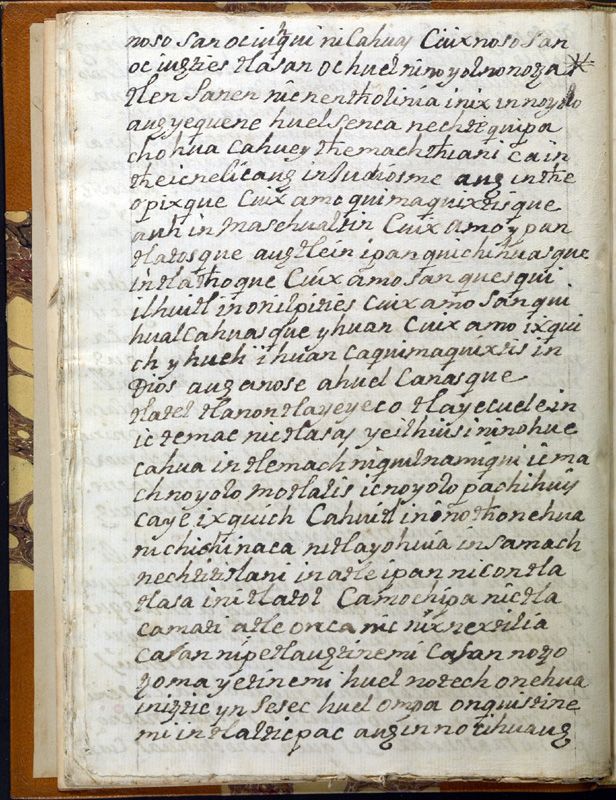 noso san ociuhqui ni Cahuas Cuix noso san
oc iuqties tlasan oc huel nino yolnonotza
tlen sanen nicnenttolinia inix innoyolo
auq yequene huel senca nechtequipa
chohua cahuey ttemachttiani ca in
tteicnelicauq in Judiosme auq in tte
opixque Cuix amo quimaquixtisque
auh in masehualtin Cuix amo ypan
tlatosque auqtlein ipan quichihuasque
in tlattoque Cuix amo san quesqui
ilhuitl inonilpities Cuix amo san qui
hualcahuasque yhuan Cuix amo ixqui
ch yhueh ihuan caquimaquixtis in
Dios auq anose ahuel Canasque
tlatel tlanontlayeyeco tlayecuele in
ic temac nictlasas yesthuis ninohue
cahua in tlemach niquilnamiqui icma
ch noyolo motlalis icnoyolo pachihuis
caye ixquich Cahuitl inonottonehua
nichichinaca nitlayohuia insamach
nechtitlani inatle ipan nicontla
tlasa initlatol Camochipa nictla
camati atle onca nic nixnextilia
casan nipetlauqtinemi casan notzo
tzoma yetinemi huel notech onehua
initzic yn sesec huel ompa onquistine
mi intlalticpac auq in notihuauq